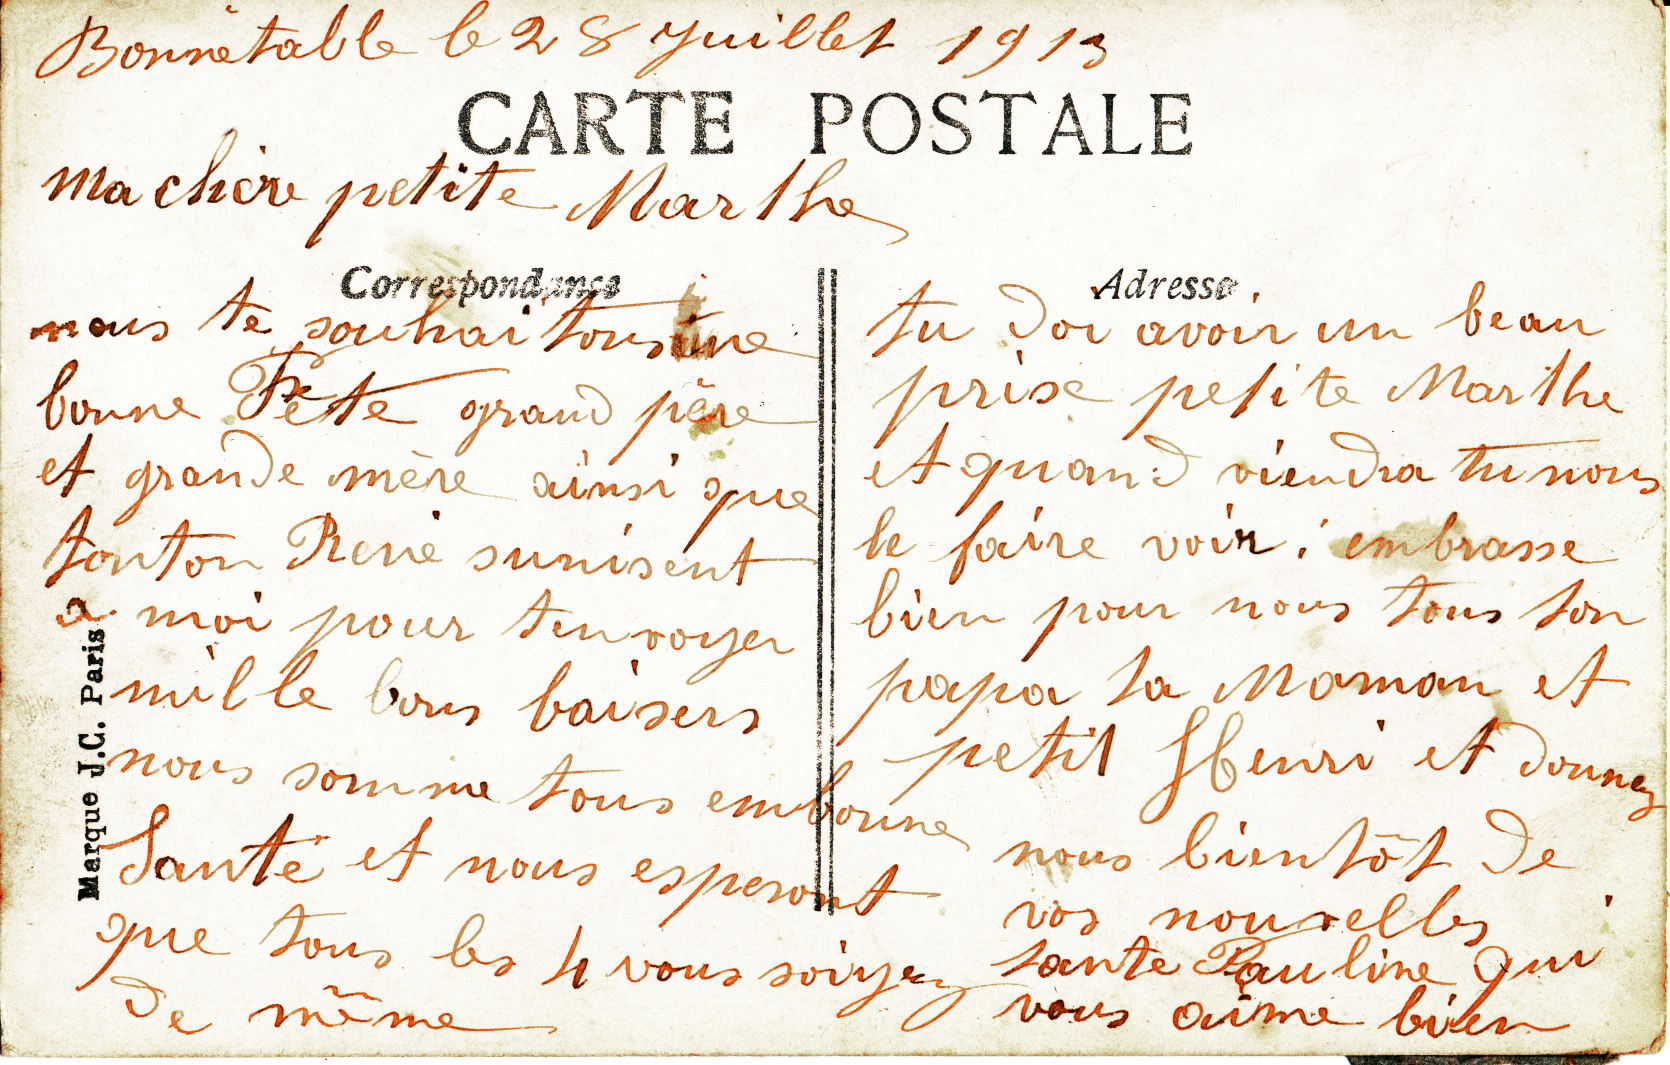 Bonnêtable le 28 Juillet 1913
CARTE POSTALE
ma chère petite Marthe
Correspondance
nous te souhaitons une
bonne Fête grand père
et grande mère ainsi que
tonton René sunisent
a moi pour tenvoyer
mille bons baisers
nous somme tous embonne
Santé et nous esperont
que tous les 4 vous soiyez
de même
Marque J.C. Paris
Adresse
tu doi avoir un beau
prise petite Marthe
et quand viendra tu nous
le faire voir; embrasse
bien pour nous tous ton
papa ta Maman et
petit Henri et donnez
nous bientôt de
vos nouvelles
tante Pauline qui
vous aime bien